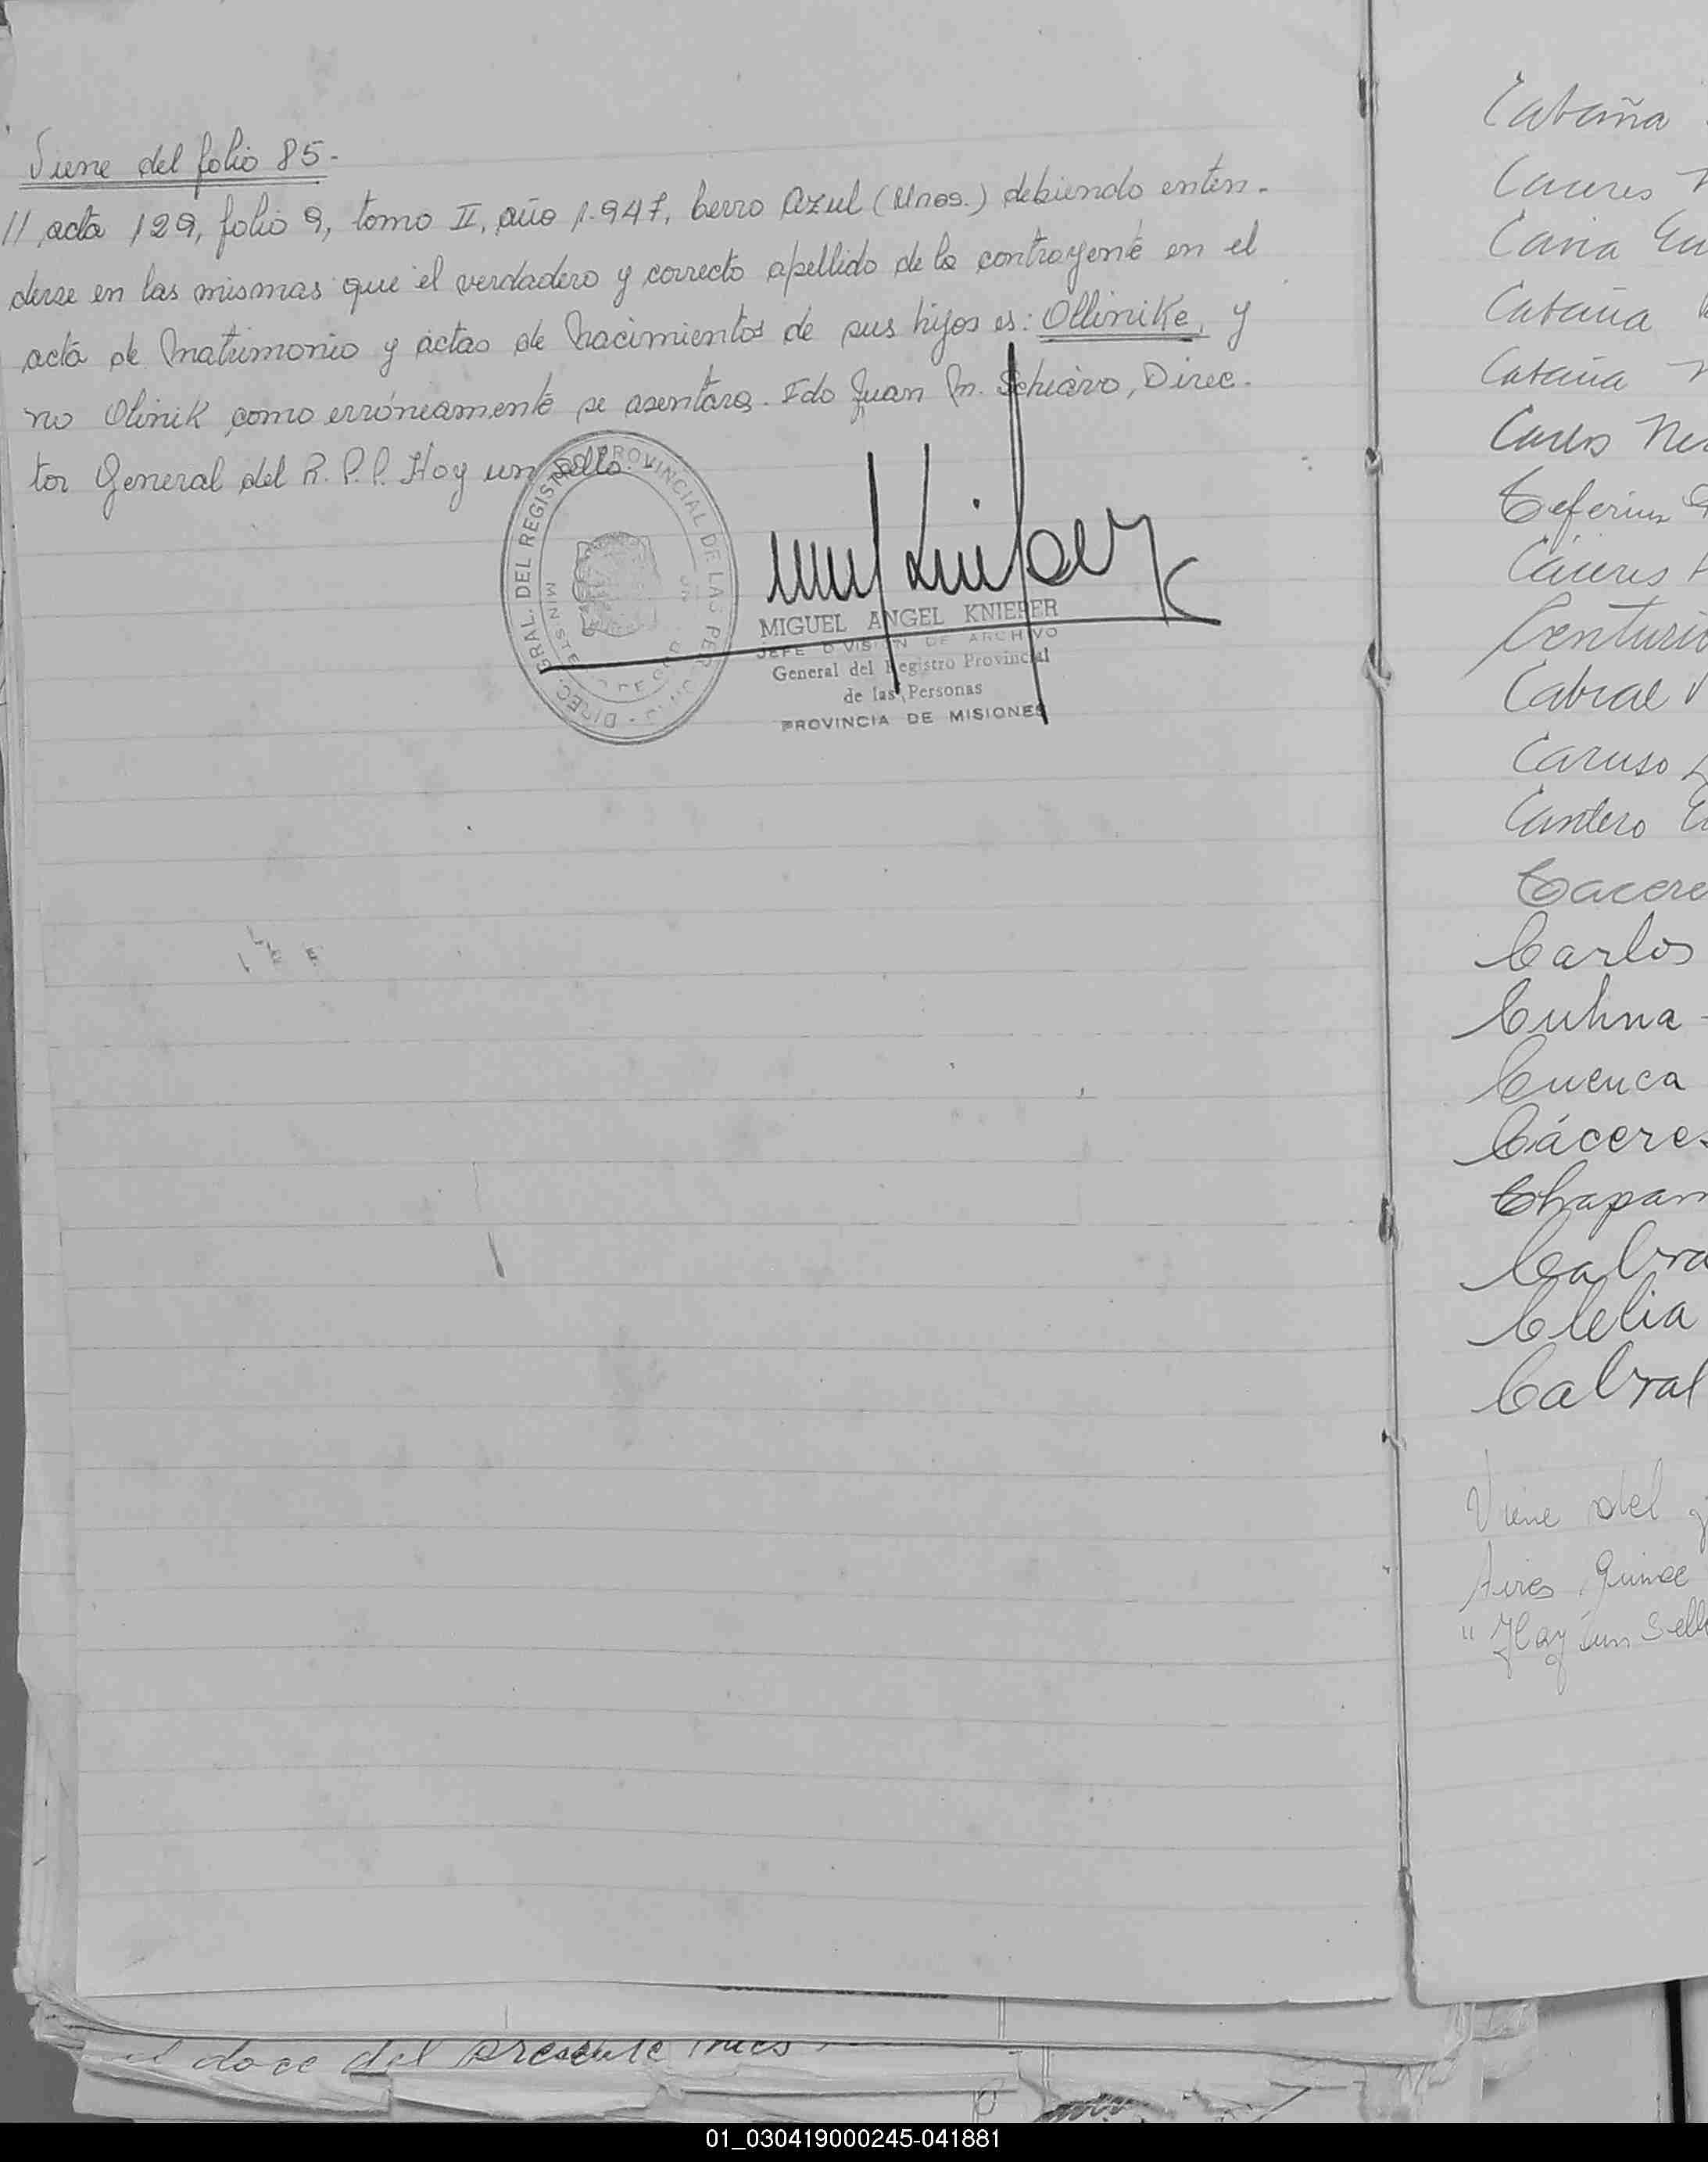 Viene del folio 85.-
// acta 129, folio 9, tomo II, año 1.947, Cerro Azul (Mnes.) debiendo enten-
derse en las mismas que el verdadero y correcto apellido de la contrayente en el
acta de Matrimonio y actas de Nacimientos de sus hijos es: Ollinike, y
no Olinik como erróneamente se asentara. Fdo Juan M. Schiavo, Direc-
tor General del R. P. P. Hay un sello.
DIREC. GRAL. DEL REGISTRO PROVINCIAL DE LAS PERSONAS
MIGUEL ANGEL KNIEPER
JEFE DIVISION DE ARCHIVO
General del Registro Provincial
de las Personas
PROVINCIA DE MISIONES
Cabaña
Caceres
Cabaña
Cabaña
Carlos
Caceres
Cabral
Caruso
Cantero
Carlos
Cuhna
Cuenca
Cáceres
Clelia
Cabral
Viene del
Aires Quince
" Hay un Sello
el doce del presente mes
01_030419000245-041881